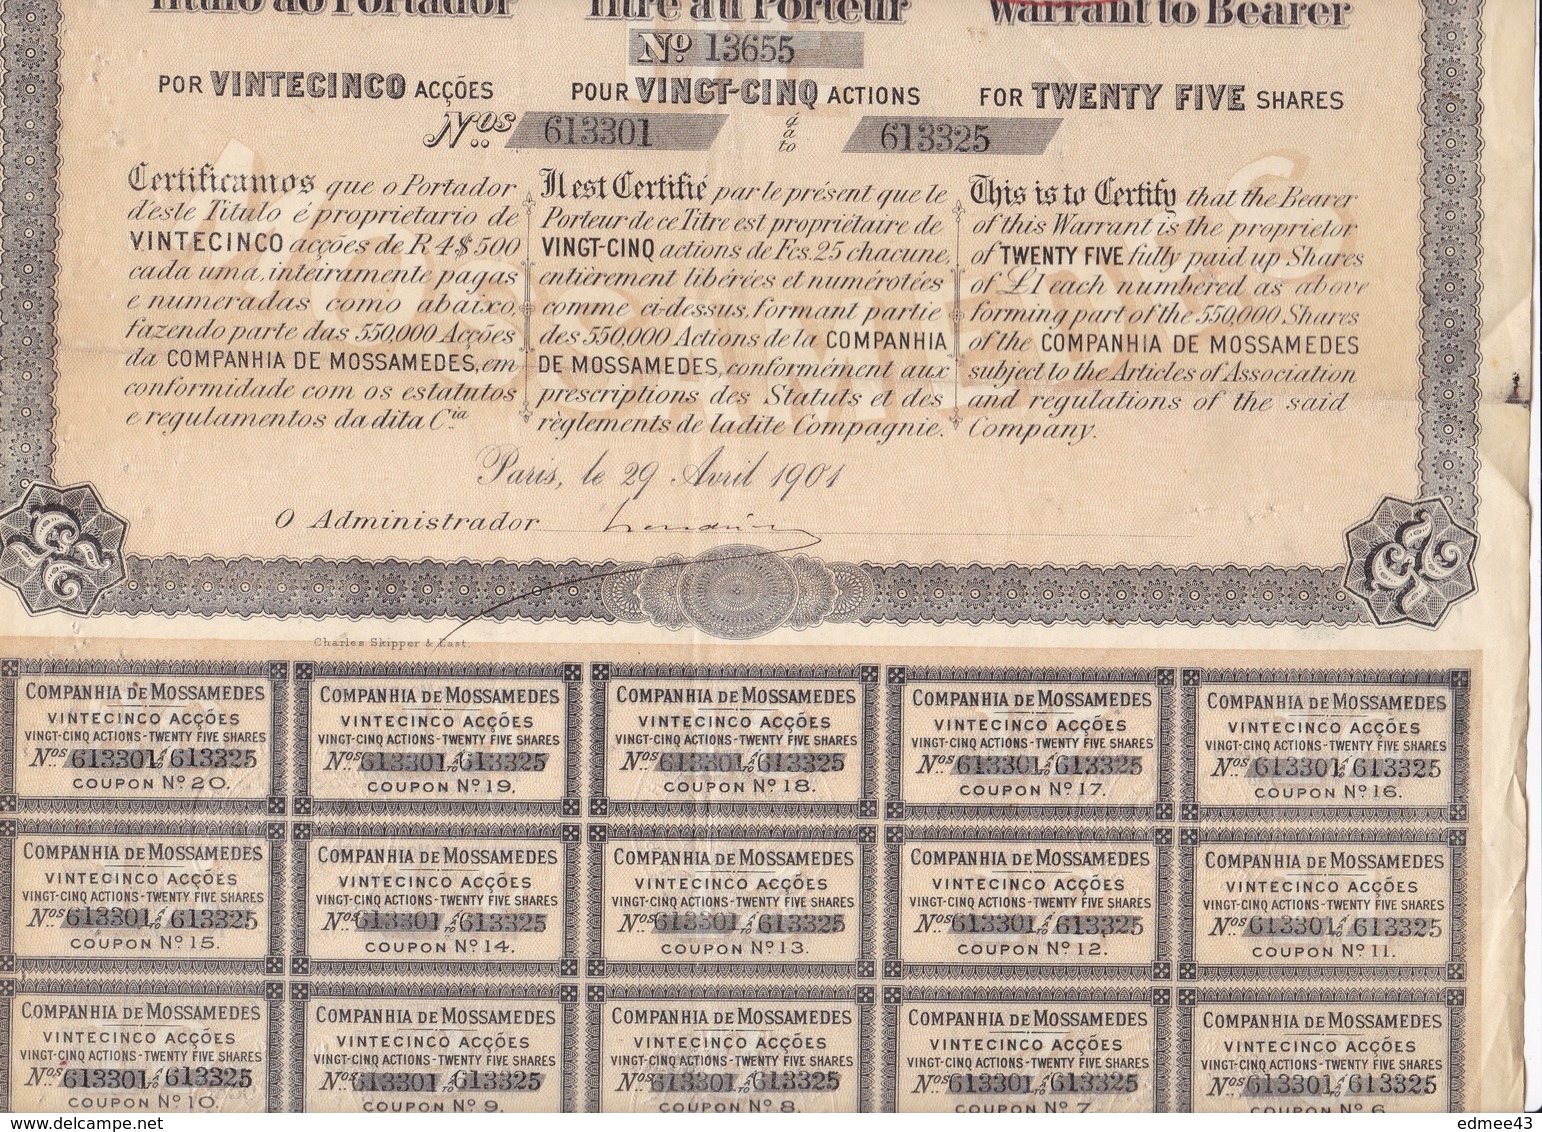 Titulo ao Portador Titre au Porteur Warrant to Bearer
Nº 13655
POR VINTECINCO ACÇÕES POUR VINGT-CINQ ACTIONS FOR TWENTY FIVE SHARES
Nos. 613301 á a to 613325
Certificamos que o Portador
d'este Titulo é proprietario de
VINTECINCO acções de R 4$500
cada uma, inteiramente pagas
e numeradas como abaixo,
fazendo parte das 550,000 Acções
da COMPANHIA DE MOSSAMEDES, em
conformidade com os estatutos
e regulamentos da dita Cia.
Il est Certifié par le présent que le
Porteur de ce Titre est propriétaire de
VINGT-CINQ actions de Fcs. 25 chacune,
entièrement libérées et numérotées
comme ci-dessus, formant partie
des 550,000 Actions de la COMPANHIA
DE MOSSAMEDES, conformément aux
prescriptions des Statuts et des
règlements de ladite Compagnie.
This is to Certify that the Bearer
of this Warrant is the proprietor
of TWENTY FIVE fully paid up Shares
of £1 each numbered as above
forming part of the 550,000 Shares
of the COMPANHIA DE MOSSAMEDES
subject to the Articles of Association
and regulations of the said
Company.
Paris, le 29 Avril 1901
O Administrador
Charles Skipper & East.
COMPANHIA DE MOSSAMEDES
VINTECINCO ACÇÕES
VINGT-CINQ ACTIONS - TWENTY FIVE SHARES
Nos. 613301 Á TO 613325
COUPON Nº 20.
COMPANHIA DE MOSSAMEDES
VINTECINCO ACÇÕES
VINGT-CINQ ACTIONS - TWENTY FIVE SHARES
Nos. 613301 Á TO 613325
COUPON Nº 19.
COMPANHIA DE MOSSAMEDES
VINTECINCO ACÇÕES
VINGT-CINQ ACTIONS - TWENTY FIVE SHARES
Nos. 613301 Á TO 613325
COUPON Nº 18.
COMPANHIA DE MOSSAMEDES
VINTECINCO ACÇÕES
VINGT-CINQ ACTIONS - TWENTY FIVE SHARES
Nos. 613301 Á TO 613325
COUPON Nº 17.
COMPANHIA DE MOSSAMEDES
VINTECINCO ACÇÕES
VINGT-CINQ ACTIONS - TWENTY FIVE SHARES
Nos. 613301 Á TO 613325
COUPON Nº 16.
COMPANHIA DE MOSSAMEDES
VINTECINCO ACÇÕES
VINGT-CINQ ACTIONS - TWENTY FIVE SHARES
Nos. 613301 Á TO 613325
COUPON Nº 15.
COMPANHIA DE MOSSAMEDES
VINTECINCO ACÇÕES
VINGT-CINQ ACTIONS - TWENTY FIVE SHARES
Nos. 613301 Á TO 613325
COUPON Nº 14.
COMPANHIA DE MOSSAMEDES
VINTECINCO ACÇÕES
VINGT-CINQ ACTIONS - TWENTY FIVE SHARES
Nos. 613301 Á TO 613325
COUPON Nº 13.
COMPANHIA DE MOSSAMEDES
VINTECINCO ACÇÕES
VINGT-CINQ ACTIONS - TWENTY FIVE SHARES
Nos. 613301 Á TO 613325
COUPON Nº 12.
COMPANHIA DE MOSSAMEDES
VINTECINCO ACÇÕES
VINGT-CINQ ACTIONS - TWENTY FIVE SHARES
Nos. 613301 Á TO 613325
COUPON Nº 11.
COMPANHIA DE MOSSAMEDES
VINTECINCO ACÇÕES
VINGT-CINQ ACTIONS - TWENTY FIVE SHARES
Nos. 613301 Á TO 613325
COUPON Nº 10.
COMPANHIA DE MOSSAMEDES
VINTECINCO ACÇÕES
VINGT-CINQ ACTIONS - TWENTY FIVE SHARES
Nos. 613301 Á TO 613325
COUPON Nº 9.
COMPANHIA DE MOSSAMEDES
VINTECINCO ACÇÕES
VINGT-CINQ ACTIONS - TWENTY FIVE SHARES
Nos. 613301 Á TO 613325
COUPON Nº 8.
COMPANHIA DE MOSSAMEDES
VINTECINCO ACÇÕES
VINGT-CINQ ACTIONS - TWENTY FIVE SHARES
Nos. 613301 Á TO 613325
COUPON Nº 7
COMPANHIA DE MOSSAMEDES
VINTECINCO ACÇÕES
VINGT-CINQ ACTIONS - TWENTY FIVE SHARES
Nos. 613301 Á TO 613325
COUPON Nº 6
www.delcampe.net
edmee43